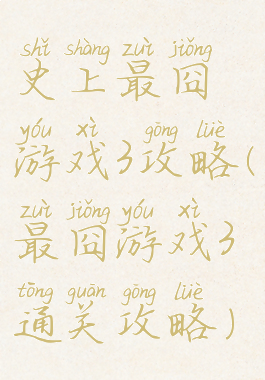 shǐ shàng zuì jiǒng
史上最囧
yóu xì gōng lüè
游戏3攻略(
zuì jiǒng yóu xì
最囧游戏3
tōng guān gōng lüè
通关攻略)